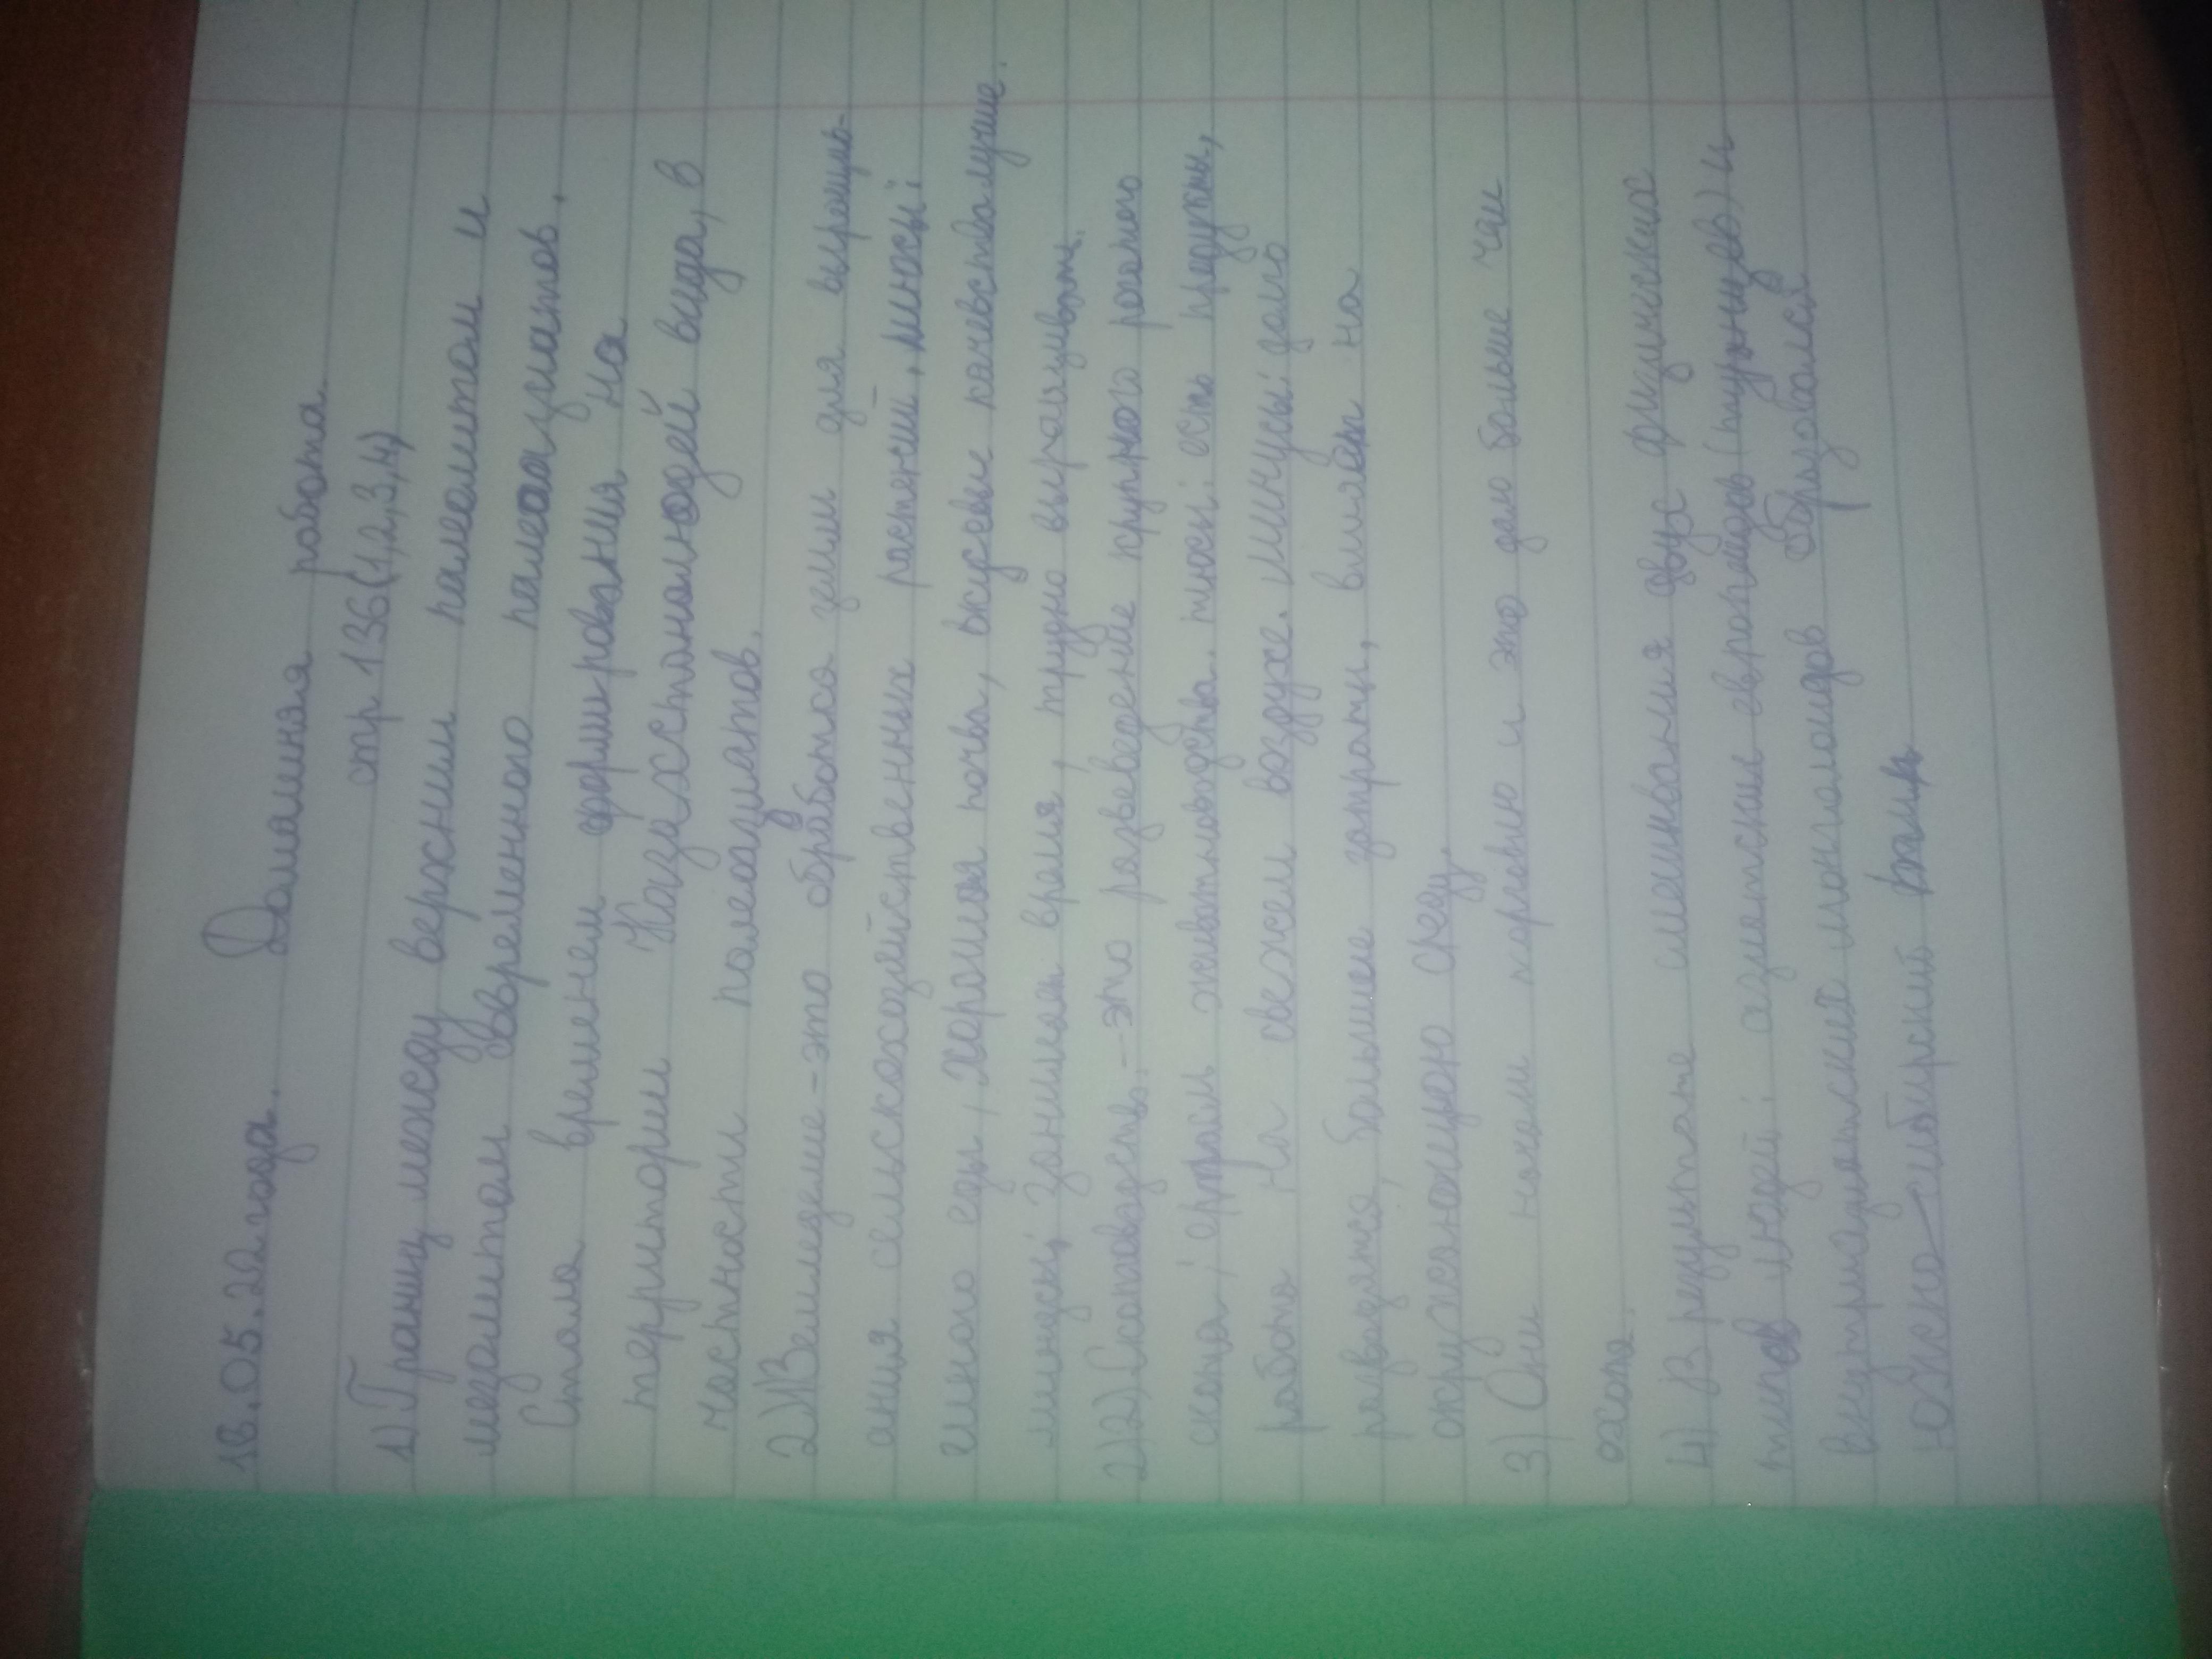 18.05.22 года. Домашняя работа
стр 136(1,2,3,4)
1) Границ между верхним палеолитом и
мезолитом временного палеоазиатов.
Стала временем формирования на
территории Казахстанолюдей вида, в
частности палеоазиатов.
2)1)Земледелие-это обработка земли для выращив-
ания сельскохозяйственных растений, плюсы:
много еды, хорошая почва, вкусовые качества лучше.
минусы: занимает время, трудно выращивать.
2)2) Скотоводств.-это разведение крупного рогатого
скота, отрасль животноводства. плюсы: есть продукты,
работа на свежем воздухе. Минусы: долго
разводятся, большие затраты, влияет на
окружающую среду.
3) Они начали кормению и это дало больше чем
охота.
4) В результате смешивания двух физических
типов людей: азиатские европейдов (тунгусов) и
внутриазиатских монголоидов образовался
Южно-сибирский